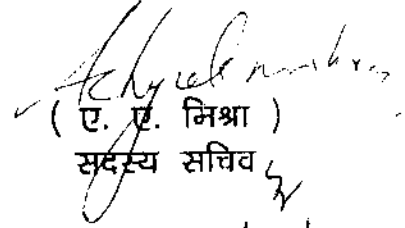 ( ए. ए. मिश्रा )
सदस्य सचिव